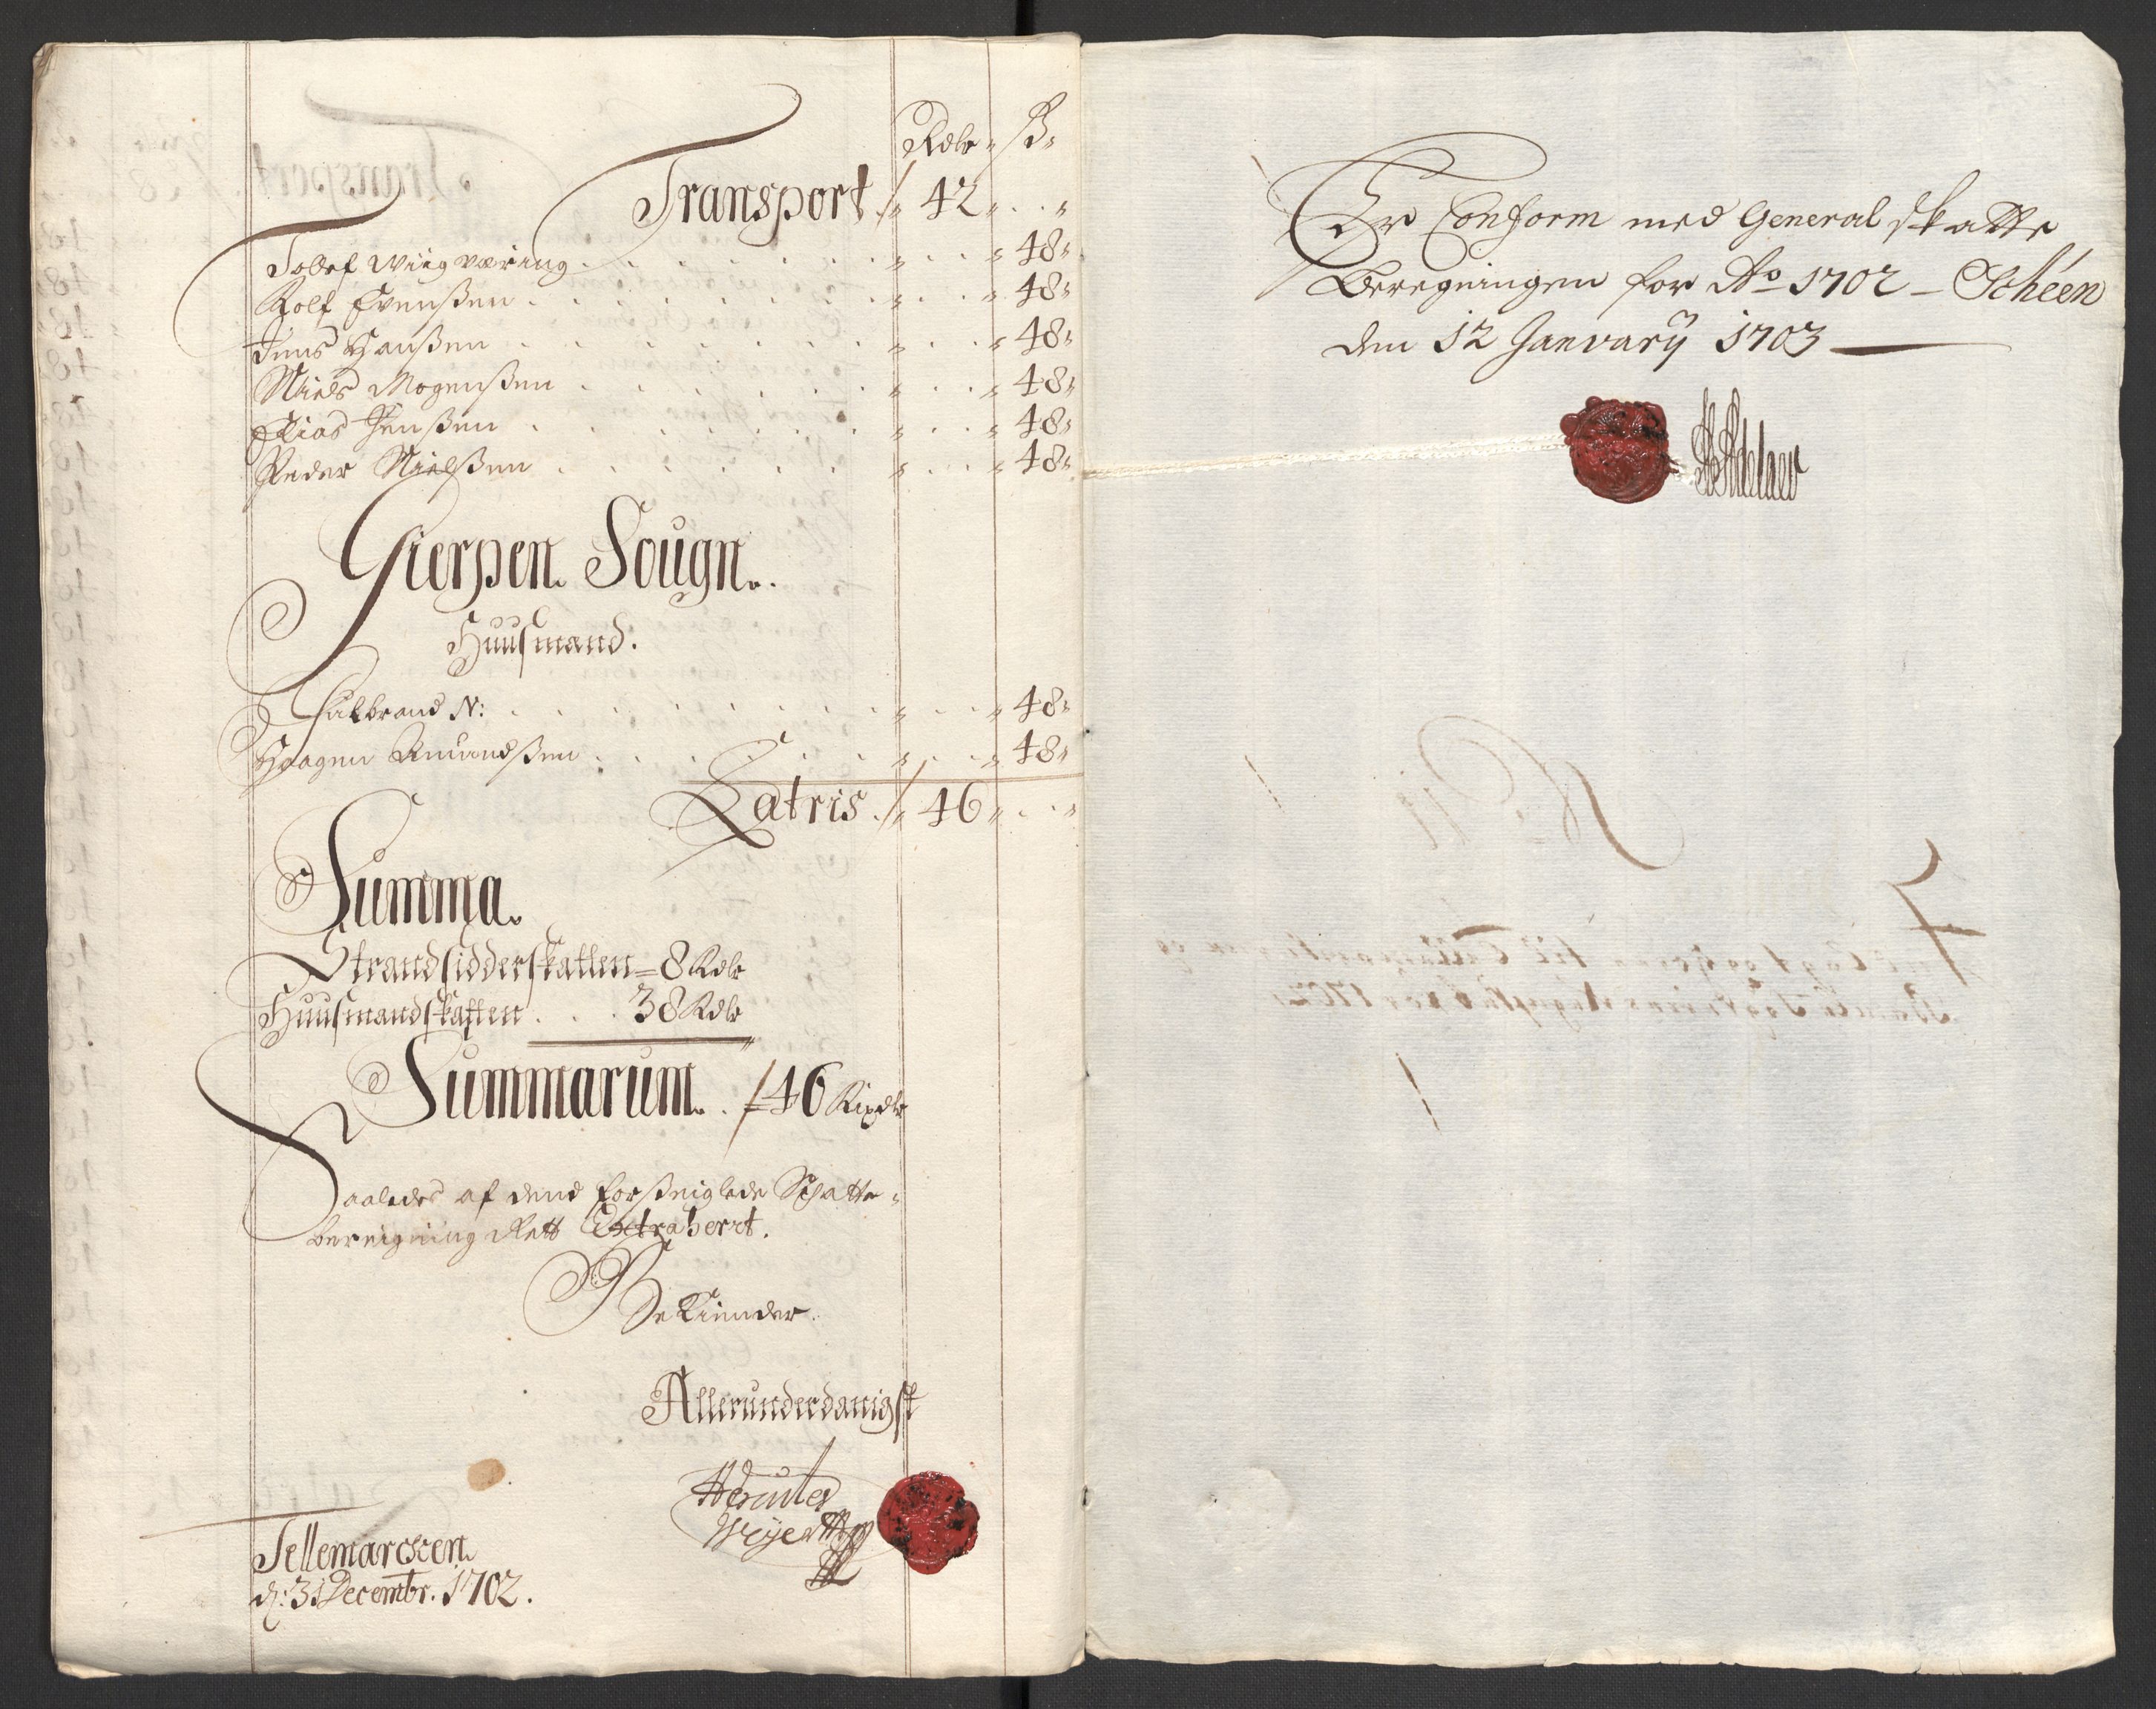 Rdlr ß
Transport 42
Tollef Wiigværing 48
Rolf Evenßen 48
Jens Hanßen 48
Niels Mogenßen 48
Elias Jenßen 48
Peder Nielßen 48
Gierpen Sougn.
Huusmænd.
Halbrand N: 48
Haagen Amundßen 48
Latris 46
Summa.
Strandsidderskatten 8 Rdlr
Huusmandskatten 38 Rdlr
Summarum. 46 Rixdlr
Saaledes af dend forßeiglede Schatte-
bereigning Rett Extrahert.
Bekiender
Allerunderdanigst
Hercules
Weyer
Tellemarchen
d: 31 Decembr. 1702.
Er Conform med General skatte
Beregningen for Ao 1702 - Schéen
den 12 January 1703